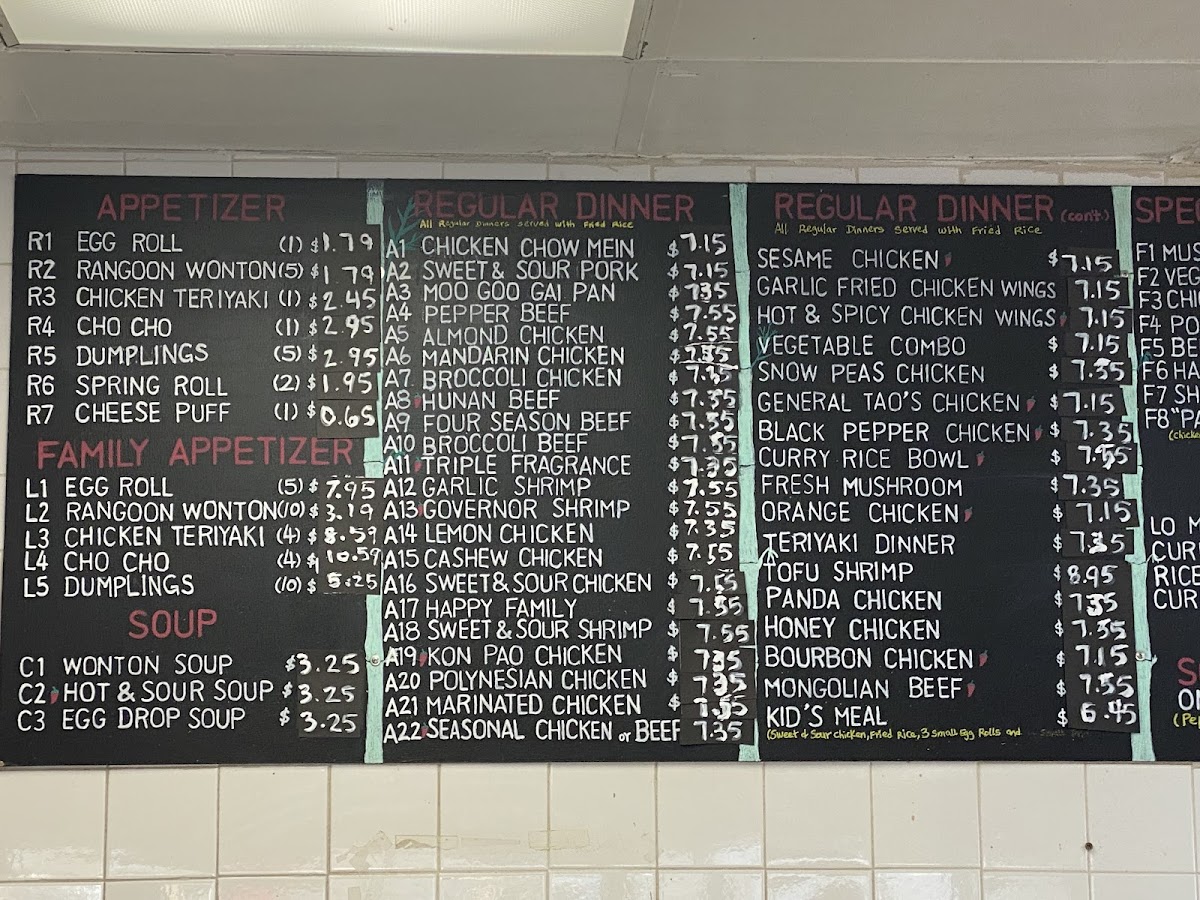 APPETIZER
R1 EGG ROLL (1) $1.79
R2 RANGOON WONTON (5) $1.79
R3 CHICKEN TERIYAKI (1) $2.45
R4 CHO CHO (1) $2.95
R5 DUMPLINGS (5) $2.95
R6 SPRING ROLL (2) $1.95
R7 CHEESE PUFF (1) $0.65
FAMILY APPETIZER
L1 EGG ROLL (5) $7.95
L2 RANGOON WONTON (10) $3.19
L3 CHICKEN TERIYAKI (4) $8.59
L4 CHO CHO (4) $10.59
L5 DUMPLINGS (10) $5.25
SOUP
C1 WONTON SOUP $3.25
C2 HOT & SOUR SOUP $3.25
C3 EGG DROP SOUP $3.25
REGULAR DINNER
All Regular Dinners served with Fried Rice
A1 CHICKEN CHOW MEIN $7.15
A2 SWEET & SOUR PORK $7.15
A3 MOO GOO GAI PAN $7.35
A4 PEPPER BEEF $7.55
A5 ALMOND CHICKEN $7.55
A6 MANDARIN CHICKEN $
A7 BROCCOLI CHICKEN $
A8 HUNAN BEEF $7.35
A9 FOUR SEASON BEEF $7.55
A10 BROCCOLI BEEF $
A11 TRIPLE FRAGRANCE $
A12 GARLIC SHRIMP $7.55
A13 GOVERNOR SHRIMP $7.55
A14 LEMON CHICKEN $7.35
A15 CASHEW CHICKEN $7.55
A16 SWEET & SOUR CHICKEN $7.55
A17 HAPPY FAMILY $
A18 SWEET & SOUR SHRIMP $7.55
A19 KON PAO CHICKEN $7.35
A20 POLYNESIAN CHICKEN $7.35
A21 MARINATED CHICKEN $
A22 SEASONAL CHICKEN or BEEF 7.35
REGULAR DINNER (cont.)
All Regular Dinners served with Fried Rice
SESAME CHICKEN $7.15
GARLIC FRIED CHICKEN WINGS 7.15
HOT & SPICY CHICKEN WINGS 7.15
VEGETABLE COMBO $7.15
SNOW PEAS CHICKEN $7.35
GENERAL TAO'S CHICKEN $7.15
BLACK PEPPER CHICKEN $7.35
CURRY RICE BOWL $
FRESH MUSHROOM $7.35
ORANGE CHICKEN $7.15
TERIYAKI DINNER $7.35
TOFU SHRIMP $8.95
PANDA CHICKEN $7.35
HONEY CHICKEN $7.35
BOURBON CHICKEN $7.15
MONGOLIAN BEEF $7.55
KID'S MEAL $6.45
(Sweet & Sour Chicken, Fried Rice, 3 Small Egg Rolls and
SPE
F1 MUS
F2 VEG
F3 CHI
F4 PO
F5 BE
F6 HA
F7 SH
F8 "P
(chicke
LO M
CUR
RICE
CUR
S
(Pe